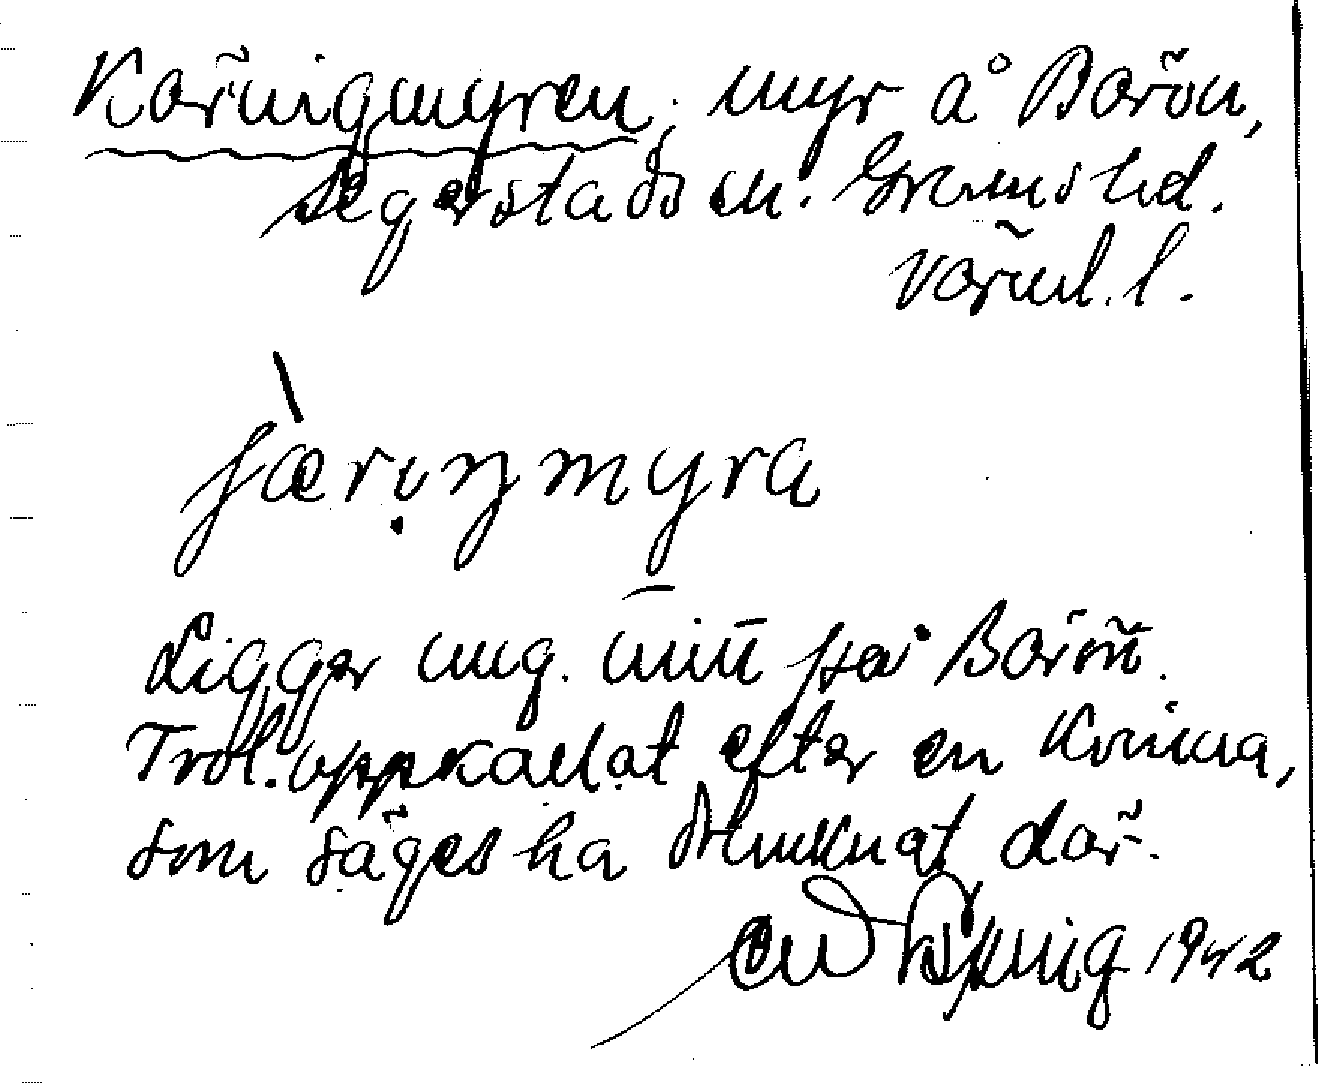 Kärringmyren, myr å Borön,
Segerstads sn. Grums hd.
Värml. l.
jæriŋmyra
Ligger ung. mitt på Borön.
Trol. uppkallat efter en kvinna,
som säges ha drunknat där.
1942